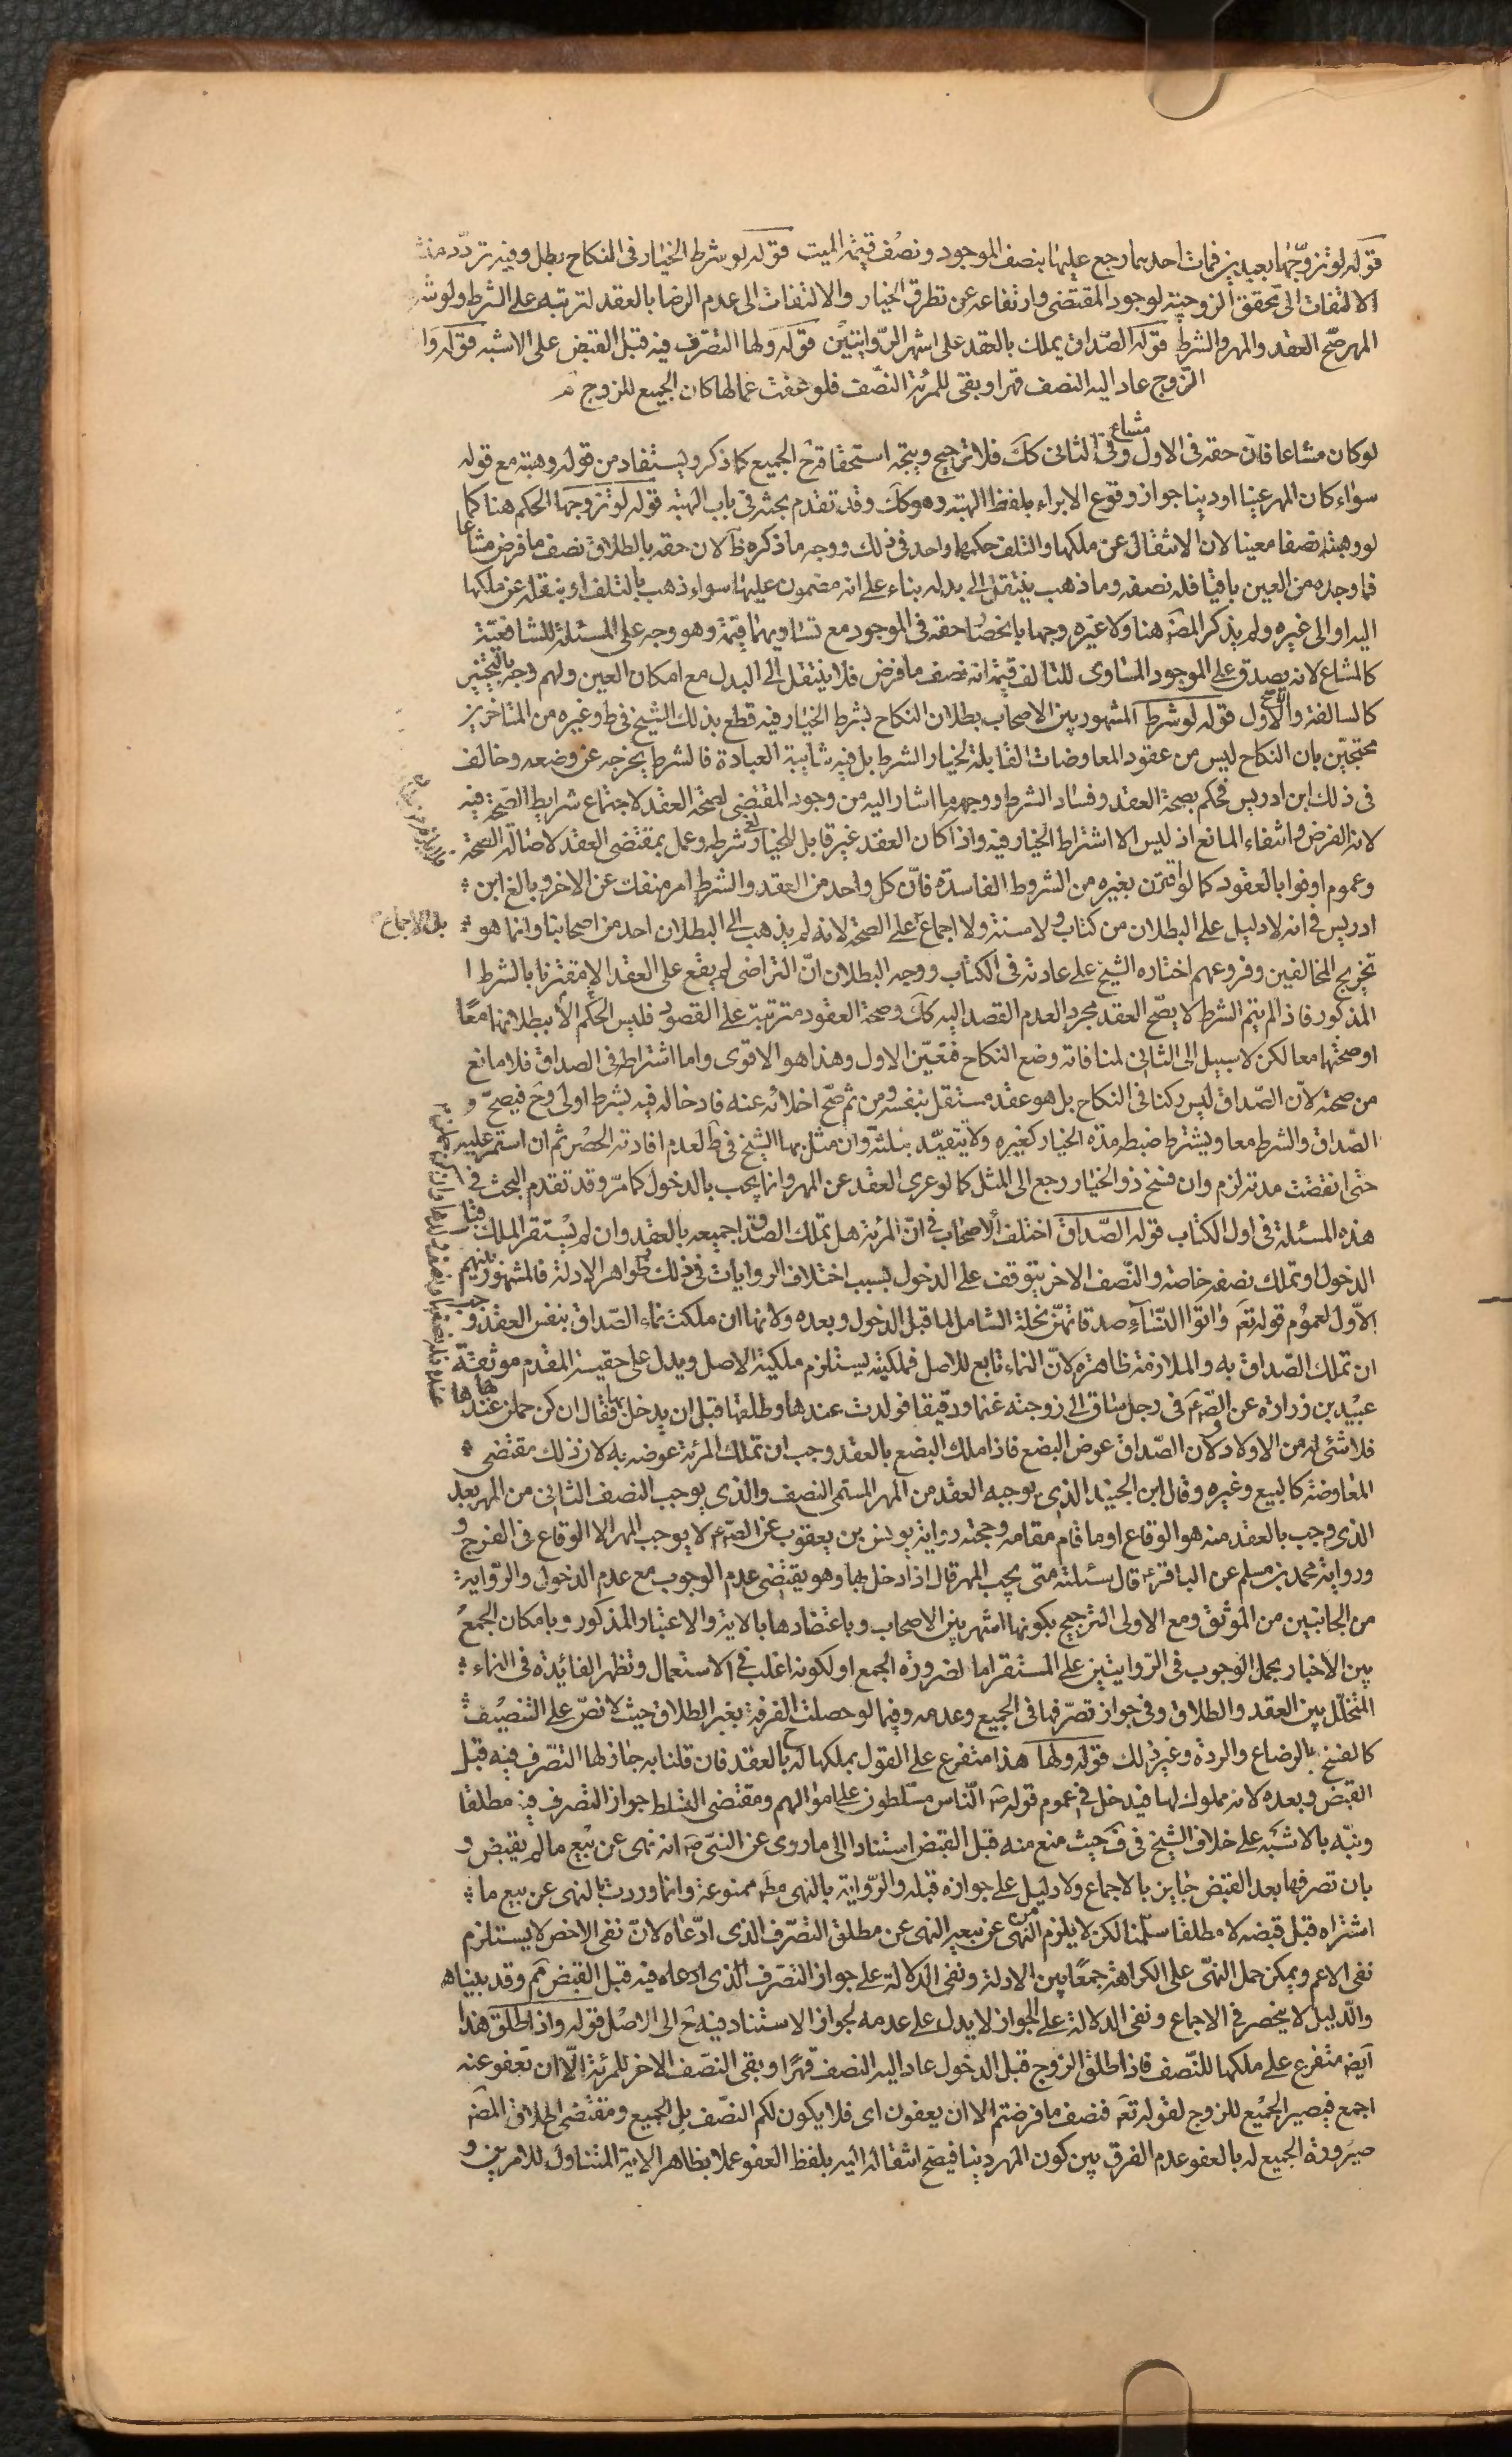 قوله لو تزوجها بعبدين فمات احدهما رجع عليها بنصف الموجود ونصف قيمة الميت قوله لو شرط الخيار في النكاح بطل وفيه تردد منشأه
الالتفات الى تحقق الزوجية لوجود المقتضى وارتفاعه عن تطرق الخيار والالتفات الى عدم الرضا بالعقد لترتبه على الشرط ولو شر
المهر صح العقد والمهر والشرط قوله الصداق يملك بالعقد على اشهر الروايتين قوله ولها التصرف فيه قبل القبض على الاشبه قوله وا
الزوج عاد اليه النصف قهرا وبقى للمرئة النصف فلو عفت عما لها كان الجميع للزوج
لو كان مشاعا فان حقه في الاول مشاع وفي الثاني كك فلا ترجيح ويتجه استحقاقه ح الجميع كما ذكر ويستفاد من قوله وهبته مع قوله
سواء كان المهر عينا او دينا جواز وقوع الابراء بلفظ الهبة وهو كك وقد تقدم بحثه في باب الهبة قوله لو تزوجها الحكم هنا كما
لو وهبته نصفا معينا لان الانتقال عن ملكها والتلف حكمهما واحد في ذلك ووجه ما ذكره ظ لان حقه بالطلاق نصف ما فرض مشاعا
فما وجده من العين باقيا فله نصفه وما ذهب ينتقل الى بدله بناء على انه مضمون عليها سواء ذهب بالتلف او بنقله عن ملكها
اليه او الى غيره ولم يذكر المص هنا ولا غيره وجها بانحصار حقه في الموجود مع تساويهما قيمة وهو وجه على المسئلة للشافعية
كالمشاع لانه يصدق على الموجود المساوى للتالف قيمة انه نصف ما فرض فلا ينتقل الى البدل مع امكان العين ولهم وجه بالتخيير
كالسالفة والاصح الاول قوله لو شرط المشهور بين الاصحاب بطلان النكاح بشرط الخيار فيه قطع بذلك الشيخ في ط وغيره من المتاخرين
محتجين بان النكاح ليس من عقود المعاوضات القابلة لخيار الشرط بل فيه شايبة العبادة فالشرط يخرجه عن وضعه وخالف
في ذلك ابن ادريس فحكم بصحة العقد وفساد الشرط ووجهه ما اشار اليه من وجود المقتضى لصحة العقد لاجتماع شرايط الصحة فيه
لانه الفرض وانتفاء المانع اذ ليس الا اشتراط الخيار فيه واذا كان العقد غير قابل للخيار لغى شرطه وعمل بمقتضى العقد لاصالة الصحة
وعموم اوفوا بالعقود كما لو اقترن بغيره من الشروط الفاسدة فان كل واحد من العقد والشرط امر منفك عن الاخر وبالغ ابن
ادريس في انه لا دليل على البطلان من كتاب ولا سنة ولا اجماع بل الاجماع على الصحة لانه لم يذهب الى البطلان احد من اصحابنا وانما هو
تخريج المخالفين وفروعهم اختاره الشيخ على عادته في الكتاب ووجه البطلان ان التراضى لم يقع على العقد الا مقترنا بالشرط
المذكور فاذا لم يتم الشرط لا يصح العقد مجردا لعدم القصد اليه كك وصحة العقود مترتبة على القصود فليس الحكم الا ببطلانهما معا
او صحتهما معا لكن لا سبيل الى الثاني لمنافاته وضع النكاح فتعين الاول وهذا هو الاقوى واما اشتراطه في الصداق فلا مانع
من صحته لان الصداق ليس ركنا في النكاح بل هو عقد مستقل بنفسه ومن ثم صح اخلائه عنه فادخاله فيه بشرط اولى وح فيصح
الصداق والشرط معا ويشترط ضبط مدة الخيار كغيره ولا يتقيد بثلثة وان مثل بها الشيخ في ط لعدم افادته الحصر ثم ان استمر عليه
حتى انقضت مدته لزم وان فسخ ذو الخيار رجع الى المثل كما لو عرى العقد عن المهر وانما يجب بالدخول كما مر وقد تقدم البحث في
هذه المسئلة في اول الكتاب قوله الصداق اختلف الاصحاب في ان المرئة هل تملك الصداق اجمعه بالعقد وان لم يستقر الملك قبل
الدخول او تملك نصفه خاصة والنصف الاخر يتوقف على الدخول بسبب اختلاف الروايات في ذلك وظواهر الادلة فالمشهور بينهم
الاول لعموم قوله تع واتوا النساء صدقاتهن نحلة الشامل لما قبل الدخول وبعده ولانها ان ملكت نماء الصداق بنفس العقد وجب
ان تملك الصداق به والملازمة ظاهرة لان النماء تابع للاصل فملكيته يستلزم ملكية الاصل ويدل على حقيسة المقدم موثقة
عبيد بن زرارة عن الص ع في رجل ساق الى زوجته غنما ورقيقا فولدت عندها وطلقها قبل ان يدخل بها فقال ان كن حملن عندها
فلا شئ له من الاولاد ولان الصداق عوض البضع فاذا ملك البضع بالعقد وجب ان تملك المرئة عوضه به لان ذلك مقتضى
المعاوضة كالبيع وغيره وقال ابن الجنيد الذى يوجبه العقد من المهر المسمى النصف والذى يوجب النصف الثاني من المهر بعد
الذى وجب بالعقد منه هو الوقاع او ما قام مقامه وحجته رواية يونس بن يعقوب عن الص ع لا يوجب المهر الا الوقاع في الفرج
ورواية محمد بن مسلم عن الباقر ع قال سئلته متى يجب المهر قال اذا دخل بها وهو يقتضى عدم الوجوب مع عدم الدخول والرواية
من الجانبين من الموثق ومع الاولى الترجيح بكونها اشهر بين الاصحاب وباعتضادها بالاية والاعتبار المذكور وبامكان الجمع
بين الاخبار بحمل الوجوب في الروايتين على المستقر اما لضرورة الجمع او لكونه اغلب في الاستعمال وتظهر الفائدة في النماء
المتخلل بين العقد والطلاق وفي جواز تصرفها في الجميع وعدمه وفيما لو حصلت الفرقة بغير الطلاق حيث لا نص على التنصيف
كالفسخ بالرضاع والردة وغير ذلك قوله ولها هذا متفرع على القول بملكها له بالعقد فان قلنا به جاز لها التصرف فيه قبل
القبض وبعده لانه مملوك لها فيدخل في عموم قوله ص الناس مسلطون على اموالهم ومقتضى التسلط جواز التصرف فيه مطلقا
ونبه بالاشبه على خلاف الشيخ في ف حيث منع منه قبل القبض استنادا الى ما روى عن النبى ص انه نهى عن بيع ما لم يقبض و
بان تصرفها بعد القبض جايز بالاجماع ولا دليل على جوازه قبله والرواية بالنهى مط ممنوعة وانما وردت بالنهى عن بيع ما
اشتراه قبل قبضه لا مطلقا سلمنا لكن لا يلزم من النهى عن بيعه النهى عن مطلق التصرف الذى ادعاه لان نفى الاخص لا يستلزم
نفى الاعم ويمكن حمل النهى على الكراهة جمعا بين الادلة ونفى الدلالة على جواز التصرف الذى ادعاه فيه قبل القبض مم وقد بيناه
والدليل لا ينحصر في الاجماع ونفى الدلالة على الجواز لا يدل على عدمه لجواز الاستناد فيه ح الى الاصل قوله واذا طلق هذا
ايضا متفرع على ملكها للنصف فاذا طلق الزوج قبل الدخول عاد اليه النصف قهرا وبقى النصف الاخر للمرئة الا ان تعفو عنه
اجمع فيصير الجميع للزوج لقوله تع فنصف ما فرضتم الا ان يعفون اى فلا يكون لكم النصف بل الجميع ومقتضى اطلاق المص
صيرورة الجميع له بالعفو عدم الفرق بين كون المهر دينا فيصح انتقاله اليه بلفظ العفو عملا بظاهر الاية المتناول للامرين و